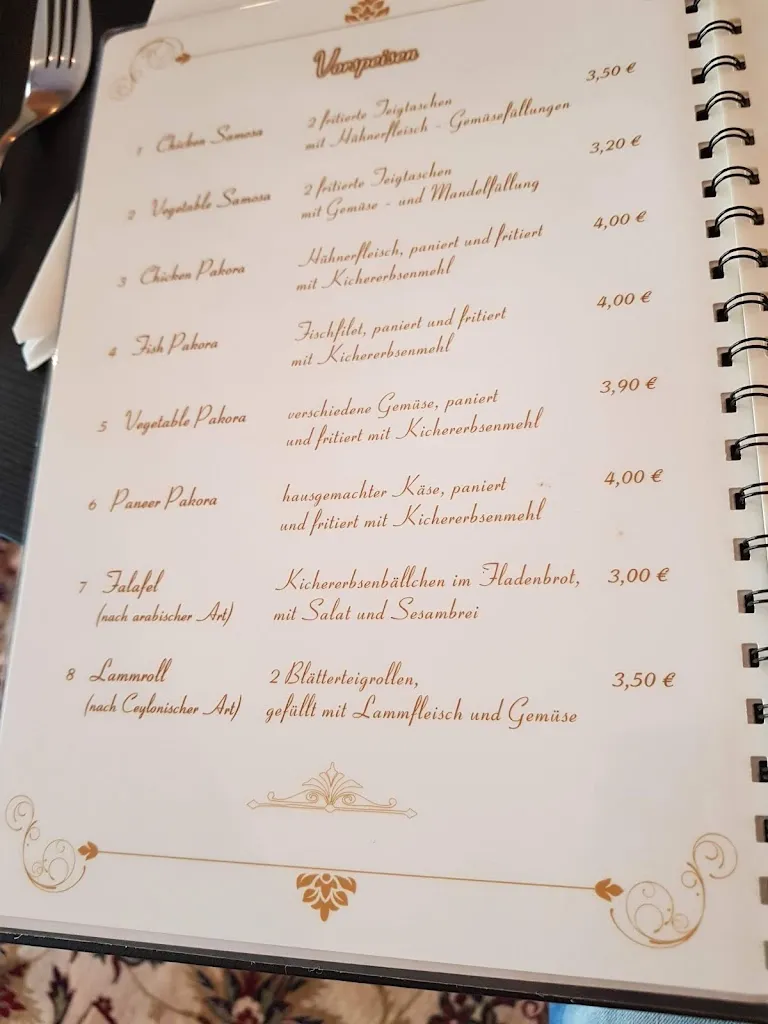 Vorspeisen
1 Chicken Samosa 2 fritierte Teigtaschen 3,50 €
mit Hühnerfleisch - Gemüsefüllungen
2 Vegetable Samosa 2 fritierte Teigtaschen 3,20 €
mit Gemüse - und Mandelfüllung
3 Chicken Pakora Hühnerfleisch, paniert und fritiert 4,00 €
mit Kichererbsenmehl
4 Fish Pakora Fischfilet, paniert und fritiert 4,00 €
mit Kichererbsenmehl
5 Vegetable Pakora verschiedene Gemüse, paniert 3,90 €
und fritiert mit Kichererbsenmehl
6 Paneer Pakora hausgemachter Käse, paniert 4,00 €
und fritiert mit Kichererbsenmehl
7 Falafel Kichererbsenbällchen im Fladenbrot, 3,00 €
(nach arabischer Art) mit Salat und Sesambrei
8 Lammroll 2 Blätterteigrollen, 3,50 €
(nach Ceylonischer Art) gefüllt mit Lammfleisch und Gemüse